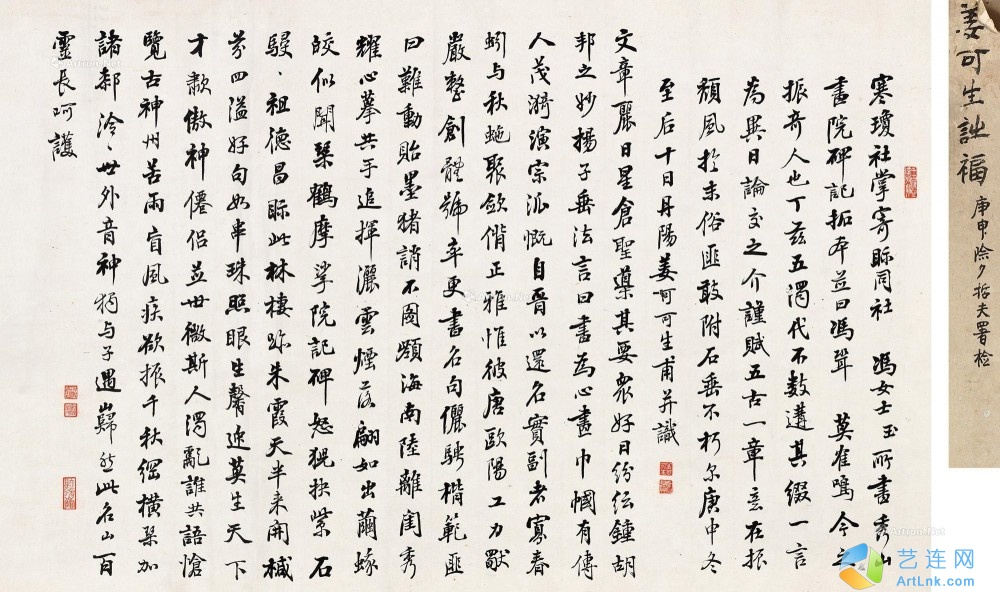 姜可生訨福
庚申除夕哲夫署检
寒瓊社掌寄眎同社 馮女士玉所書秀山
畫院碑記拓本並曰馮聳 莫崔鳴今之
振奇人也丁茲五濁代不數遘其綴一言
為異日論交之介謹賦五古一章意在振
頹風於末俗匪敢附石垂不朽尔庚申冬
至后十日丹陽姜可可生甫并識
文章麗日星倉聖導其要眾好日紛紜鍾胡
邦之妙揚子垂法言曰書為心畫巾幗有傳
人茂漪演宗派慨自晋以還名實副者寡春
蚓与秋蛇聚斂偕正雅惟彼唐歐陽工力猒
嚴整創體號率更書名句儷騁楷範匪
曰難動貽墨猪誚不圖瀕海南陸離閨秀
耀心摹共手追揮灑雲煙落翩如出繭蛾
皎似聞琹鶴摩挲院記碑怒猊抉紫石
駸、祖德昌眎此林棲跡朱霞天半来開椷
芬四溢好句如串珠照眼生馨逸莫生天下
才歗傲神僊侣並世微斯人濁亂誰共語愴
覽古神州苦雨盲風疾欲振千秋綱横琹加
諸郗泠、世外音神犳与子遇巋然此名山百
靈長呵護
艺连网
ArtLnk.com